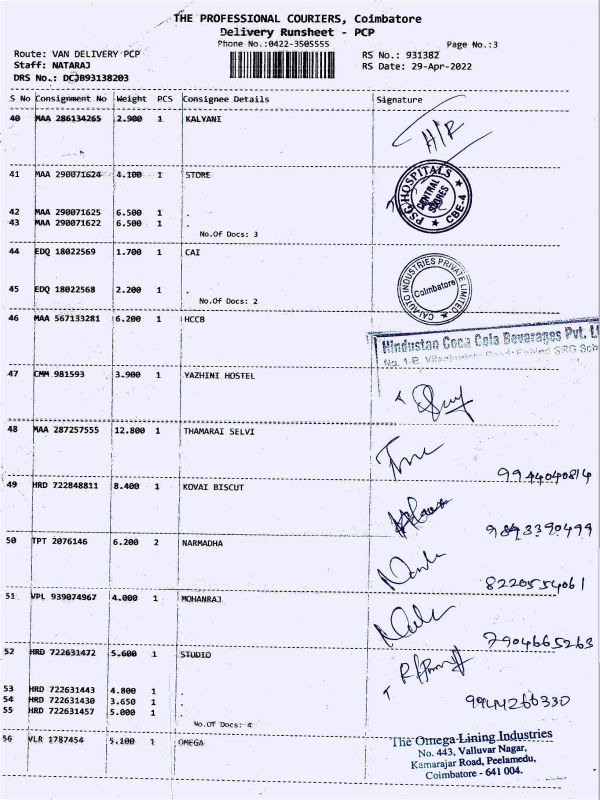 THE PROFESSIONAL COURIERS, Coimbatore
Delivery Runsheet - PCP
Phone No.:0422-3505555
Page No.:3
Route: VAN DELIVERY PCP
RS No.: 931382
Staff: NATARAJ
RS Date: 29-Apr-2022
DRS No.: DCJB93138203
S No Consignment No Weight PCS Consignee Details Signature
40 MAA 286134265 2.900 1 KALYANI
H/R
41 MAA 290071624 4.100 1 STORE
PSG HOSPITALS
CENTRAL STORES
CBE-4
42 MAA 290071625 6.500 1 .
43 MAA 290071622 6.500 1 .
No.Of Docs: 3
44 EDQ 18022569 1.700 1 CAI
CAI AUTO INDUSTRIES PRIVATE LIMITED
Coimbatore
45 EDQ 18022568 2.200 1 .
No.Of Docs: 2
46 MAA 567133281 6.200 1 HCCB
Hindustan Coca Cola Beverages Pvt. L
No. 1-B,
47 CMM 981593 3.900 1 YAZHINI HOSTEL
48 MAA 287257555 12.800 1 THAMARAI SELVI
9944040814
49 HRD 722848811 8.400 1 KOVAI BISCUT
9893390499
50 TPT 2076146 6.200 2 NARMADHA
8220554061
51 VPL 939074967 4.000 1 MOHANRAJ
7904665263
52 HRD 722631472 5.600 1 STUDIO
53 HRD 722631443 4.800 1 .
54 HRD 722631430 3.650 1 .
55 HRD 722631457 5.000 1 .
No.Of Docs: 4
56 VLR 1787454 5.100 1 OMEGA
The Omega Lining Industries
No. 443, Valluvar Nagar,
Kamarajar Road, Peelamedu,
Coimbatore - 641 004.